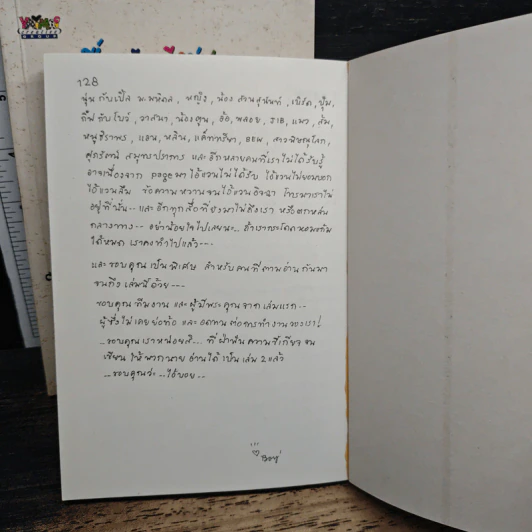 128
นุ่น กับ เปิ้ล ม.มหิดล, หญิง, น้อง สวนสุนันทา, เบิร์ด, ปุ้ม,
กิ๊ฟ กับ โบว์, วาสนา, น้องตูน, อ้อ, พลอย, JIB, แมว, ส้ม,
หนูธิราพร, แอน, หลิน, แค็ททรียา, BEW, สาวพิษณุโลก,
ศุภรัตน์ สมุทรปราการ และอีกหลายคนที่เราไม่ได้รับรู้
อาจเนื่องจาก page มาไอ้แวนไม่ได้รับ ไอ้แวนไม่ยอมบอก
ไอ้แวนลืม ข้อความหวานจนไอ้แวนอิจฉา โทรมาเราไม่
อยู่ที่นั่น-- และอีกทุกสื่อที่ส่งมาไม่ถึงเรา หรือตกหล่น
กลางทาง-- อย่าน้อยใจไปเลยนะ.. ถ้าเรากระโดดหอมแก้ม
ได้หมด เราคงทำไปแล้ว---
และขอบคุณเป็นพิเศษ สำหรับคนที่ตามอ่านกันมา
จนถึงเล่มนี้ด้วย---
ขอบคุณทีมงาน และผู้มีพระคุณจากเล่มแรก--
ผู้ซึ่งไม่เคยย่อท้อ และอดทนต่อการทำงานของเรา!
-ขอบคุณเราหน่อยสิ... ที่ฝ่าฟันความขี้เกียจจน
เขียนให้พวกนายอ่านได้เป็นเล่ม 2 แล้ว
-ขอบคุณว่ะ--ไอ้บอย--